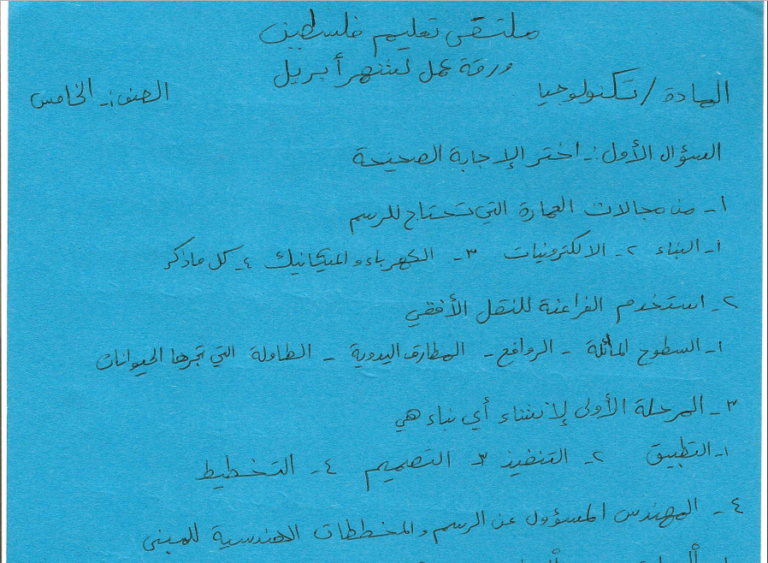 ملتقى تعليم فلسطين
ورقة عمل لشهر أبريل
المادة / تكنولوجيا الصف :- الخامس
السؤال الأول :- اختر الإجابة الصحيحة
١- من مجالات العمارة التي تحتاج للرسم
١- البناء ٢- الالكترونيات ٣- الكهرباء والميكانيك ٤- كل ما ذكر
٢- استخدم الفراعنة للنقل الأفقي
١- السطوح المائلة - الروافع - المطارق اليدوية - الطاولة التي تجرها الحيوانات
٣- المرحلة الأولى لإنشاء أي بناء هي
١- التطبيق ٢- التنفيذ ٣- التصميم ٤- التخطيط
٤- المهندس المسؤول عن الرسم والمخططات الهندسية للمبنى